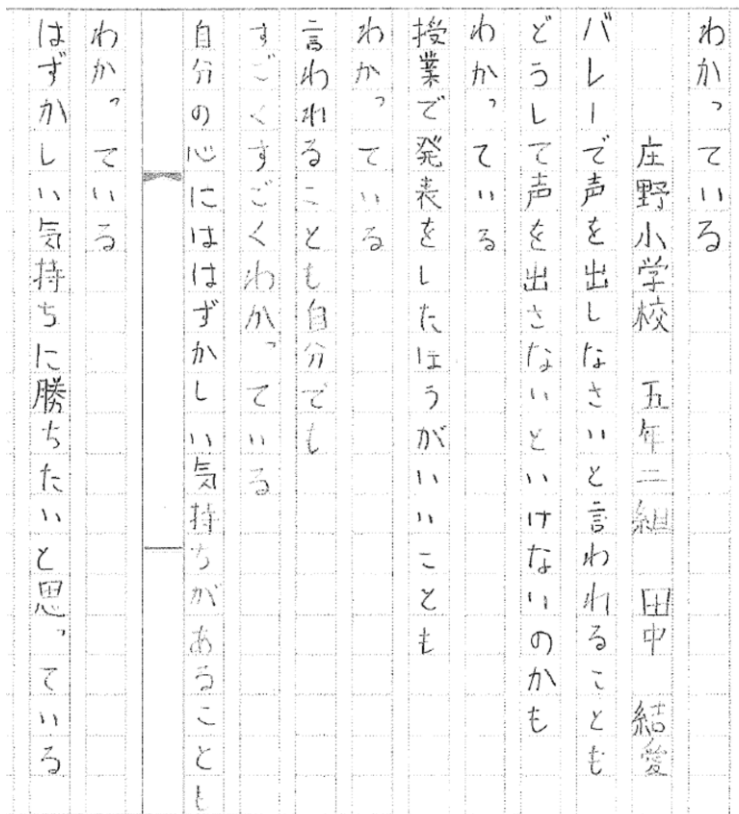 わかっている
庄野小学校 五年二組 田中 結愛
バレーで声を出しなさいと言われることも
どうして声を出さないといけないのかも
わかっている
授業で発表をしたほうがいいことも
わかっている
言われることも自分でも
すごくすごくわかっている
自分の心にははずかしい気持ちがあることも
わかっている
はずかしい気持ちに勝ちたいと思っている